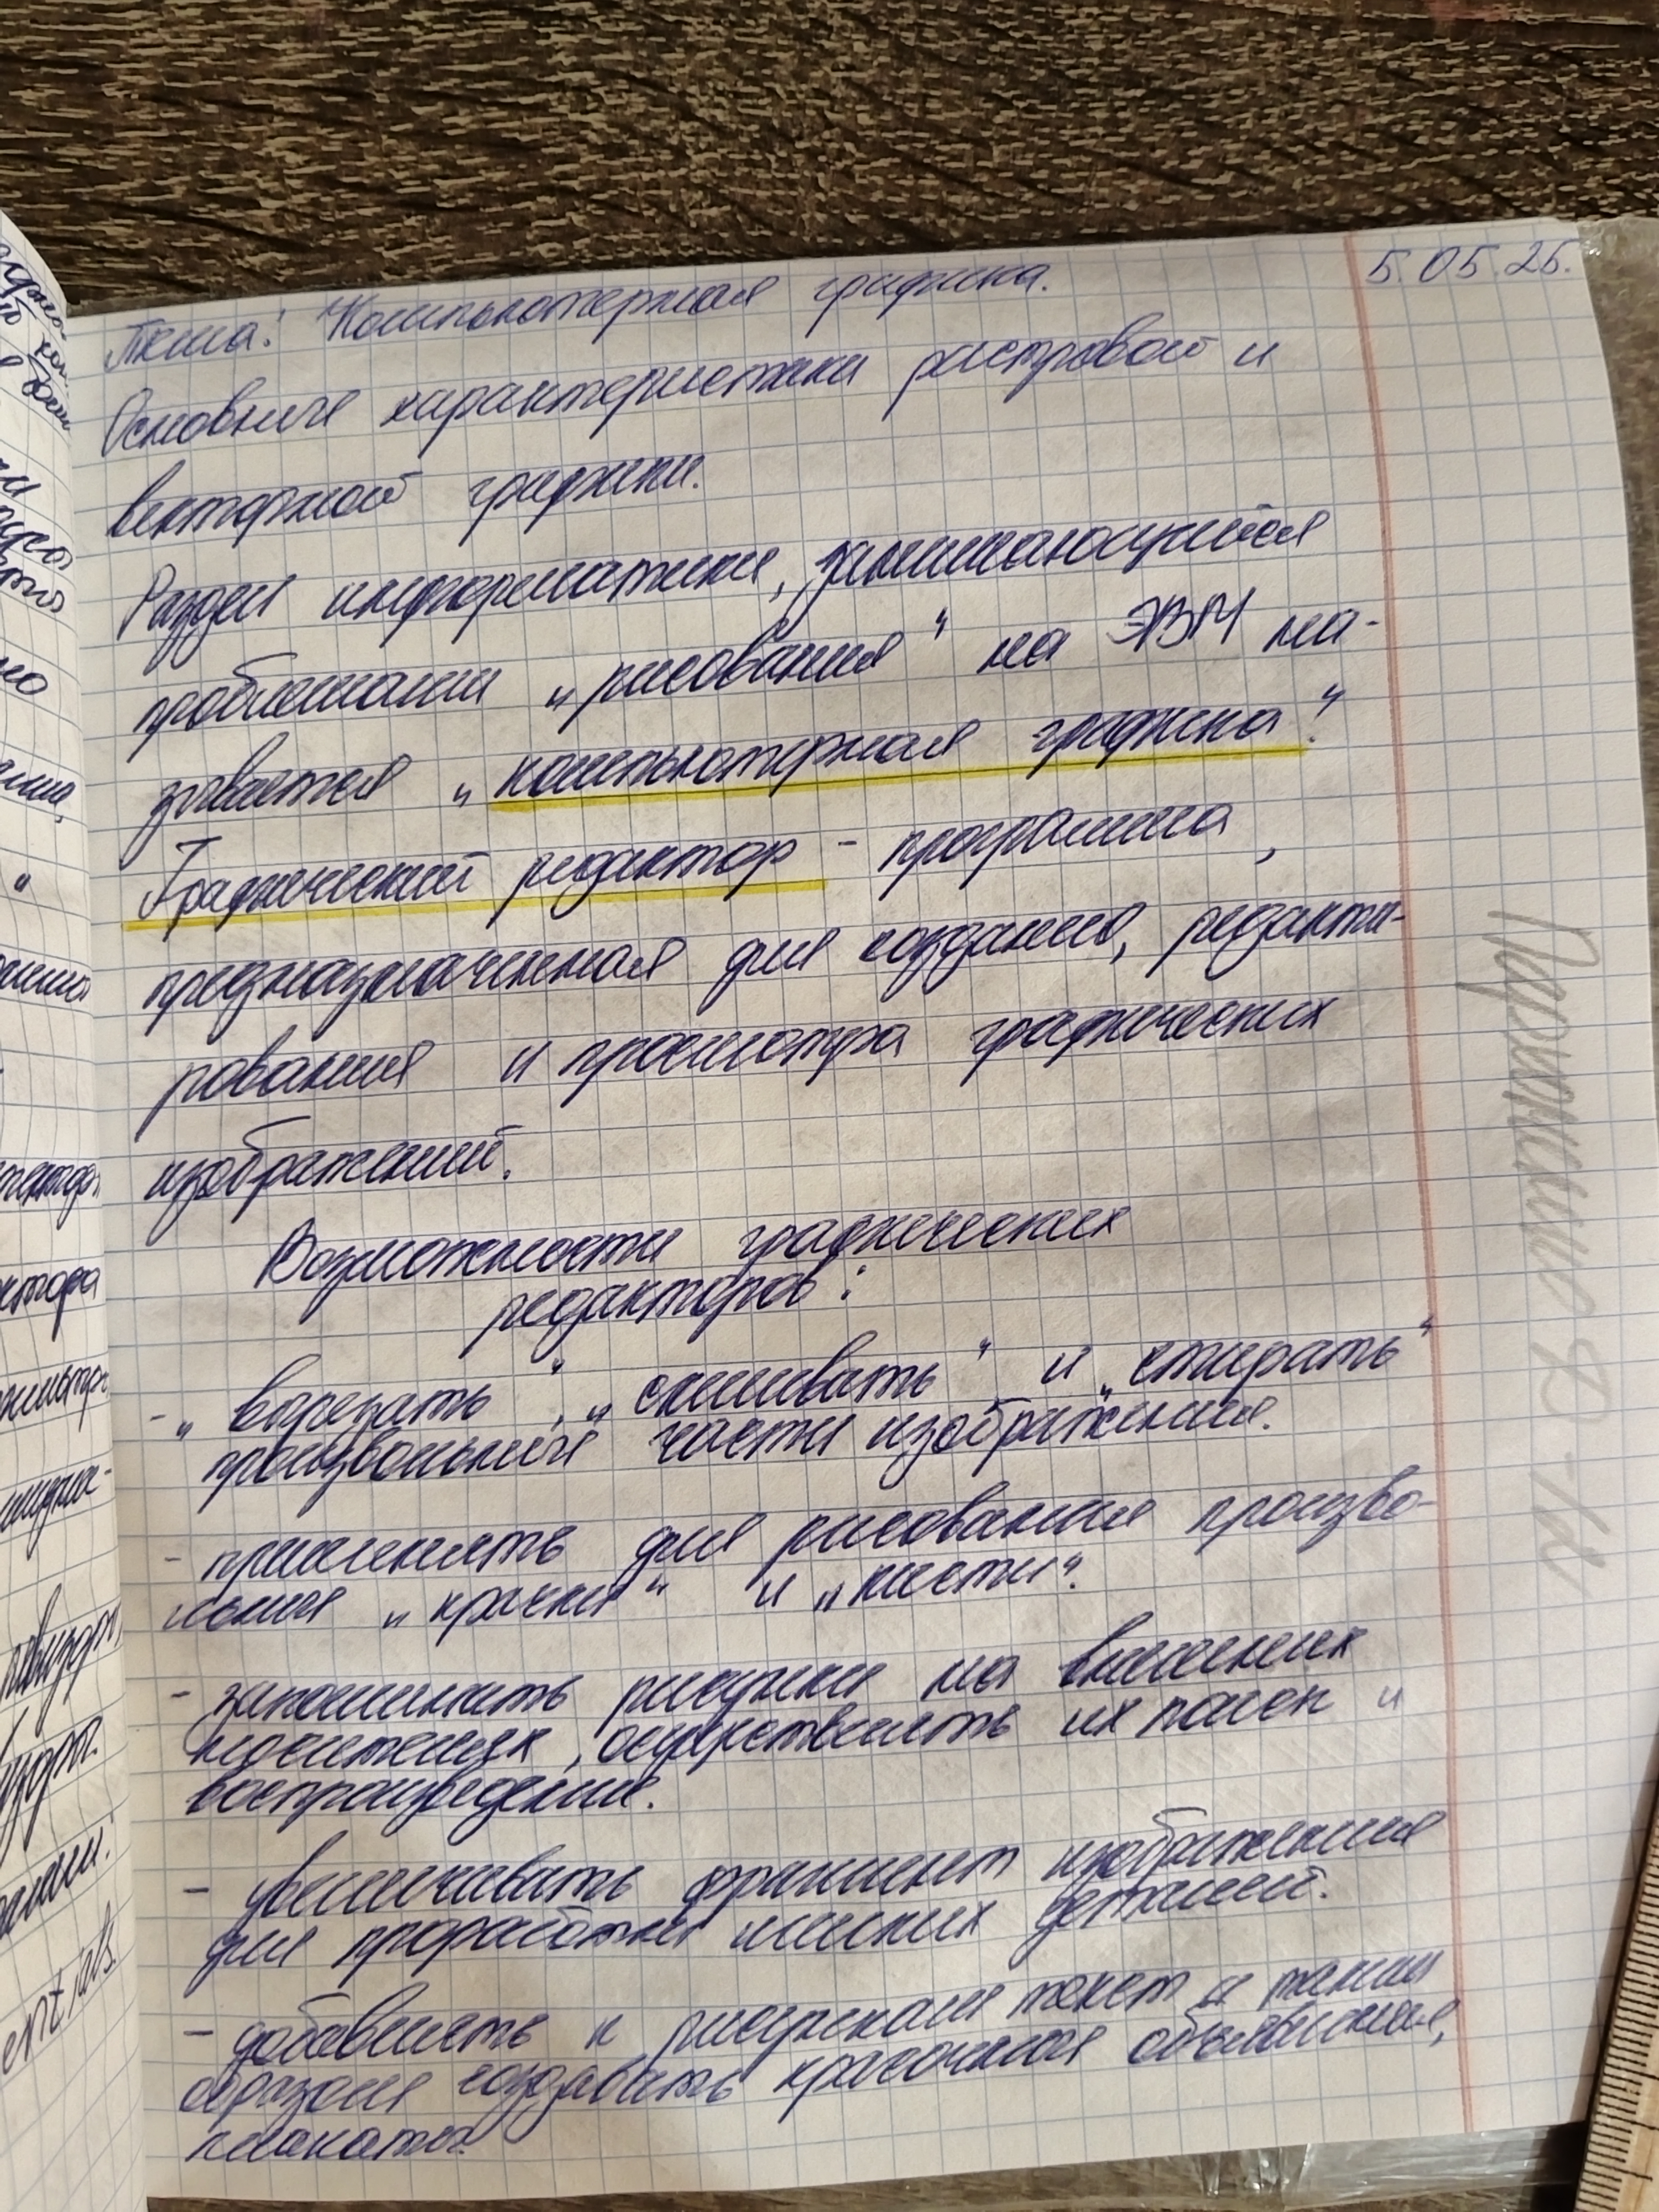 5.05.25.
Тема: Компьютерная графика.
Основные характеристики растровой и
векторной графики.
Раздел информатики, занимающийся
проблемами „рисования“ на ЭВМ на-
зывается „компьютерная графика“.
Графический редактор - программа,
предназначенная для создания, редакти-
рования и просмотра графических
изображений.
Возможности графических
редакторов:
- „вырезать“, „склеивать“ и „стирать“
произвольные части изображения.
- применять для рисования произво-
льные „краски“ и „кисти“.
- запоминать рисунки на внешних
носителях, осуществлять их поиск и
воспроизведение.
- увеличивать фрагмент изображения
для проработки мелких деталей.
- добавлять к рисункам текст и таким
образом создавать красочные объявления,
плакаты.